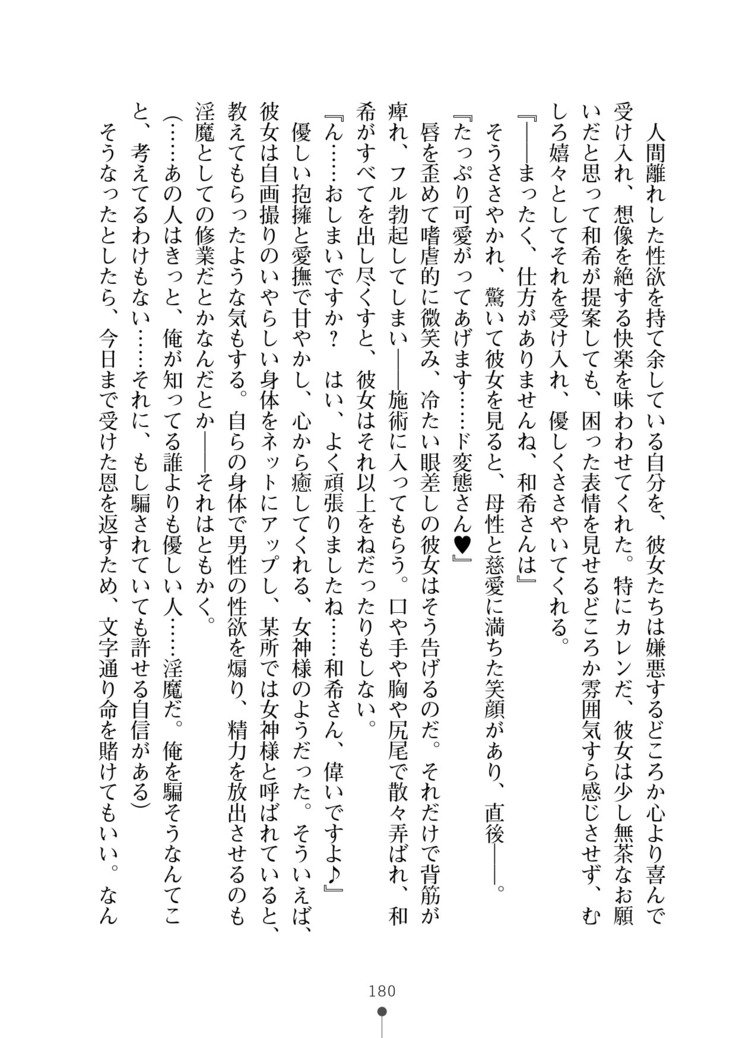 人間離れした性欲を持て余している自分を、彼女たちは嫌悪するどころか心より喜んで
受け入れ、想像を絶する快楽を味わわせてくれた。特にカレンだ、彼女は少し無茶なお願
いだと思って和希が提案しても、困った表情を見せるどころか雰囲気すら感じさせず、む
しろ嬉々としてそれを受け入れ、優しくささやいてくれる。
『――まったく、仕方がありませんね、和希さんは』
　そうささやかれ、驚いて彼女を見ると、母性と慈愛に満ちた笑顔があり、直後――。
『たっぷり可愛がってあげます……ド変態さん♥』
　唇を歪めて嗜虐的に微笑み、冷たい眼差しの彼女はそう告げるのだ。それだけで背筋が
痺れ、フル勃起してしまい――施術に入ってもらう。口や手や胸や尻尾で散々弄ばれ、和
希がすべてを出し尽くすと、彼女はそれ以上をねだったりもしない。
『ん……おしまいですか？　はい、よく頑張りましたね……和希さん、偉いですよ♪』
　優しい抱擁と愛撫で甘やかし、心から癒してくれる、女神様のようだった。そういえば、
彼女は自画撮りのいやらしい身体をネットにアップし、某所では女神様と呼ばれていると、
教えてもらったような気もする。自らの身体で男性の性欲を煽り、精力を放出させるのも
淫魔としての修業だとかなんだとか――それはともかく。
（……あの人はきっと、俺が知ってる誰よりも優しい人……淫魔だ。俺を騙そうなんてこ
と、考えてるわけもない……それに、もし騙されていても許せる自信がある）
　そうなったとしたら、今日まで受けた恩を返すため、文字通り命を賭けてもいい。なん
180